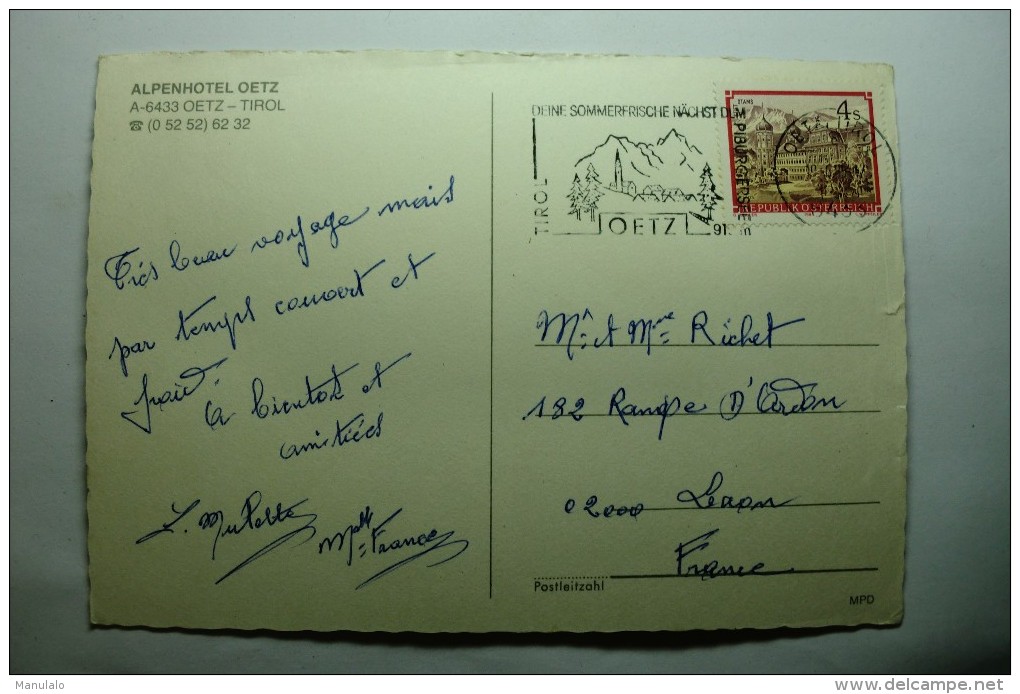 ALPENHOTEL OETZ
A-6433 OETZ – TIROL
☎ (0 52 52) 62 32
Très beau voyage mais
par temps couvert et
froid.
A bientot et
amitiés
Mme France
DEINE SOMMERFRISCHE NÄCHST DEM PIBURGERSEE
TIROL
OETZ
STAMS
4 S
REPUBLIK ÖSTERREICH
Mr et Mme Richet
182 Rampe D'Ardon
02000 Laon
France
Postleitzahl
MPD
Manulalo
delcampe.net